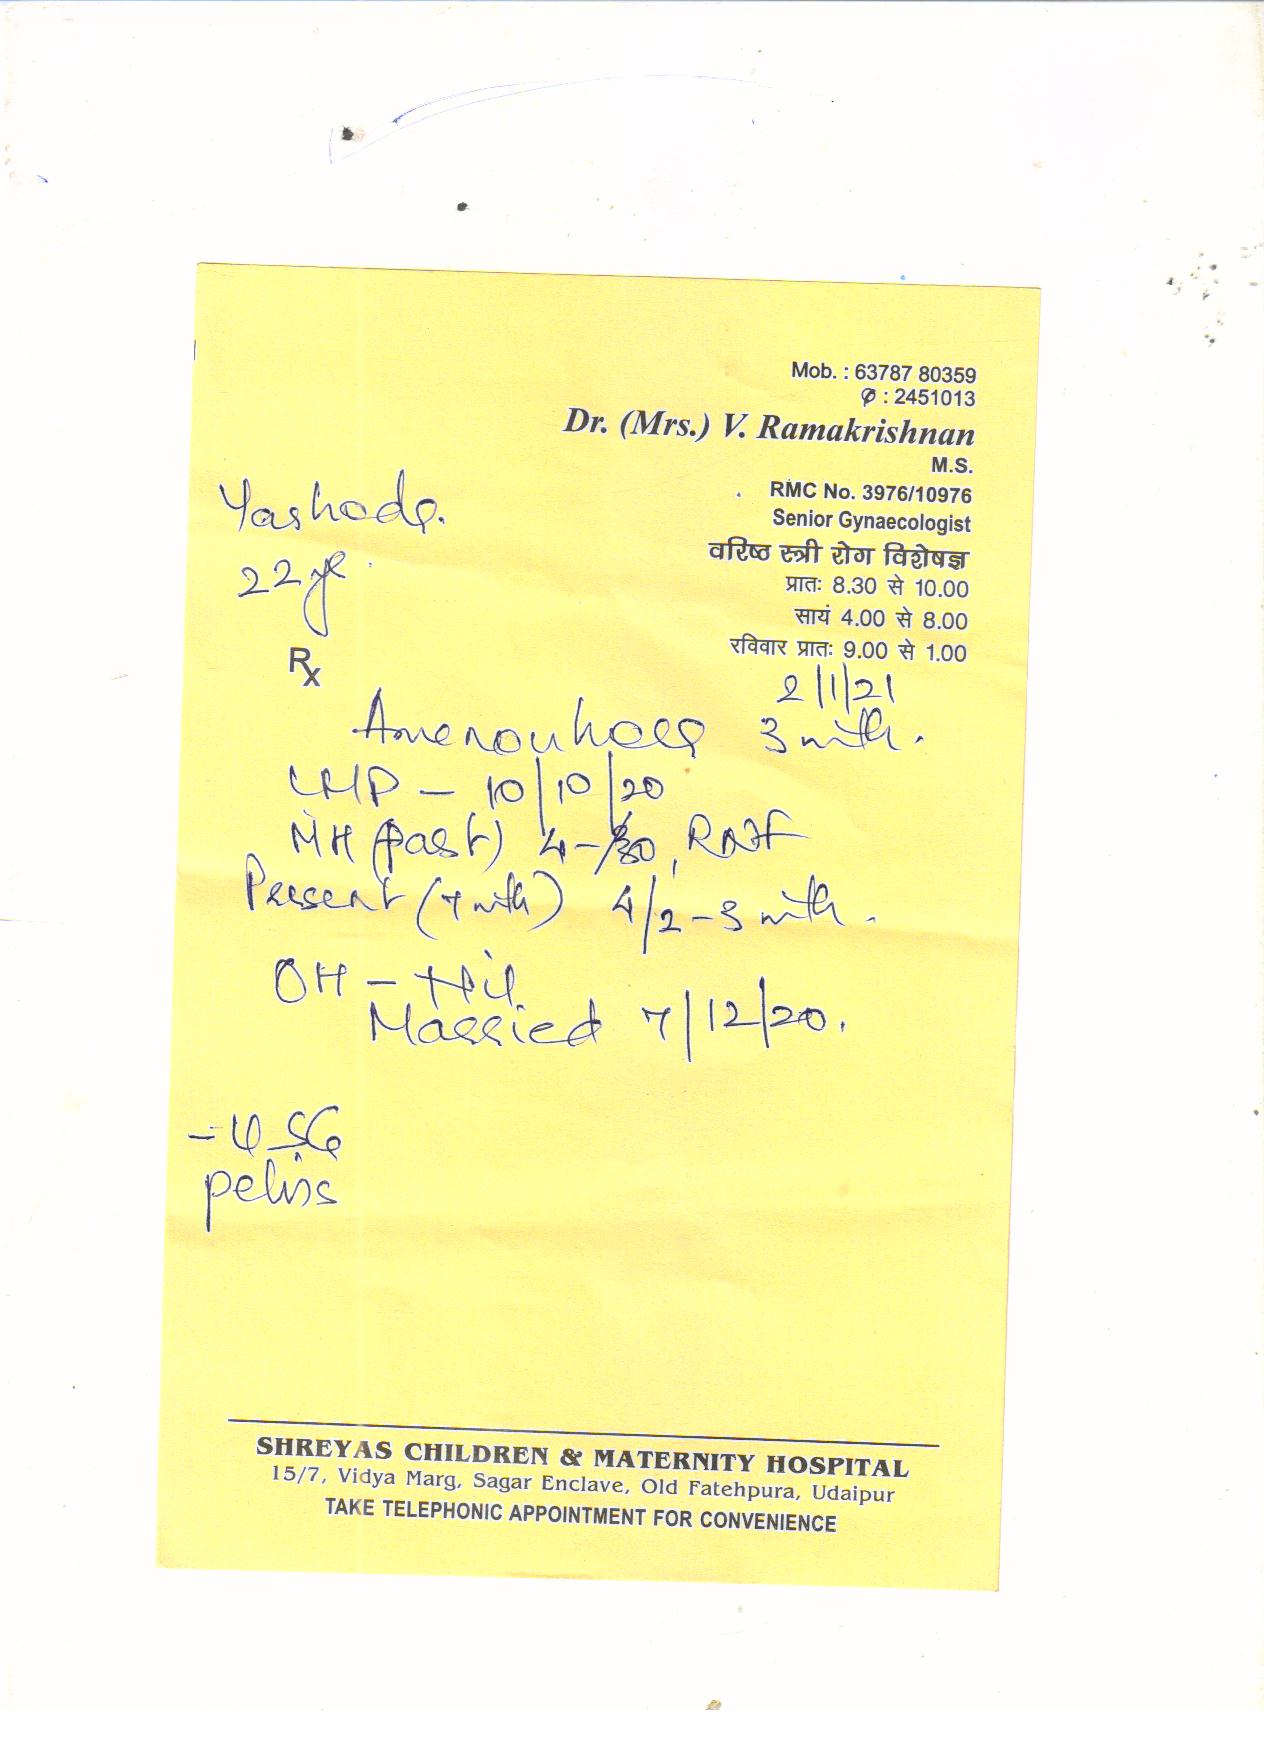 Mob. : 63787 80359
✆ : 2451013
Dr. (Mrs.) V. Ramakrishnan
M.S.
RMC No. 3976/10976
Senior Gynaecologist
वरिष्ठ स्त्री रोग विशेषज्ञ
प्रातः 8.30 से 10.00
सायं 4.00 से 8.00
रविवार प्रातः 9.00 से 1.00
Yashoda.
22 yr.
Rx
2/1/21
Amenorrhoea 3 mth.
LMP - 10/10/20
MH (past) 4-/30,
Present (7 mth) 4/2-3 mth.
OH - Nil
Married 7/12/20.
- USG
pelvis
SHREYAS CHILDREN & MATERNITY HOSPITAL
15/7, Vidya Marg, Sagar Enclave, Old Fatehpura, Udaipur
TAKE TELEPHONIC APPOINTMENT FOR CONVENIENCE